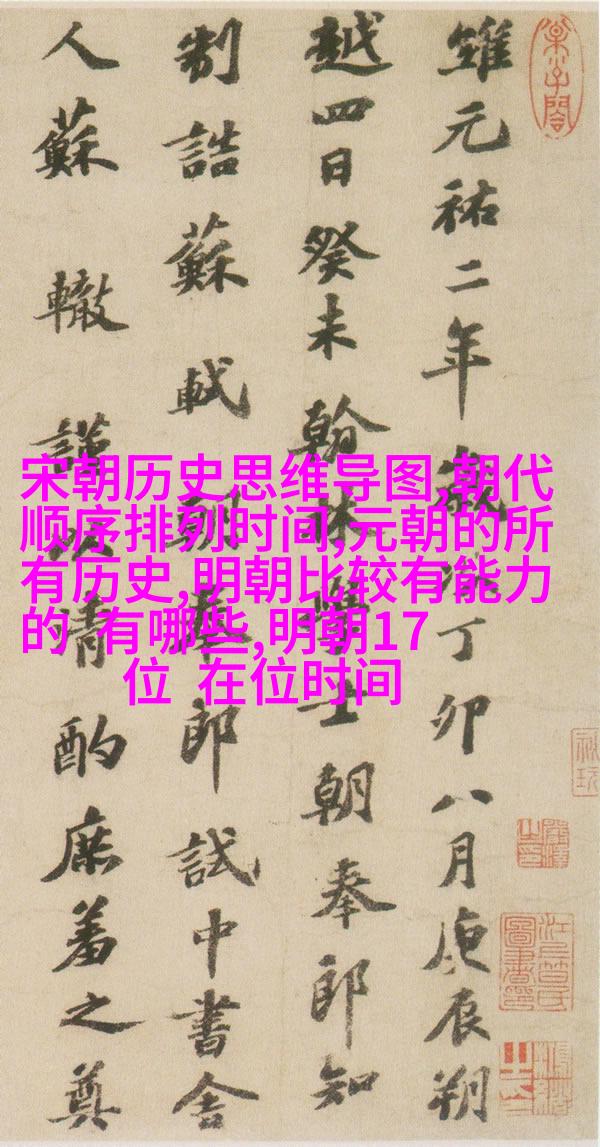 維元祐二年歲次丁卯八月庚辰朔
越四日癸未翰林學士朝奉郎知
制誥蘇軾朝奉郎試中書舍
人蘇轍謹以清酌庶羞之奠
宋朝历史思维导图,朝代
顺序排列时间,元朝的所
有历史,明朝比较有能力
的 有哪些,明朝17
位 在位时间